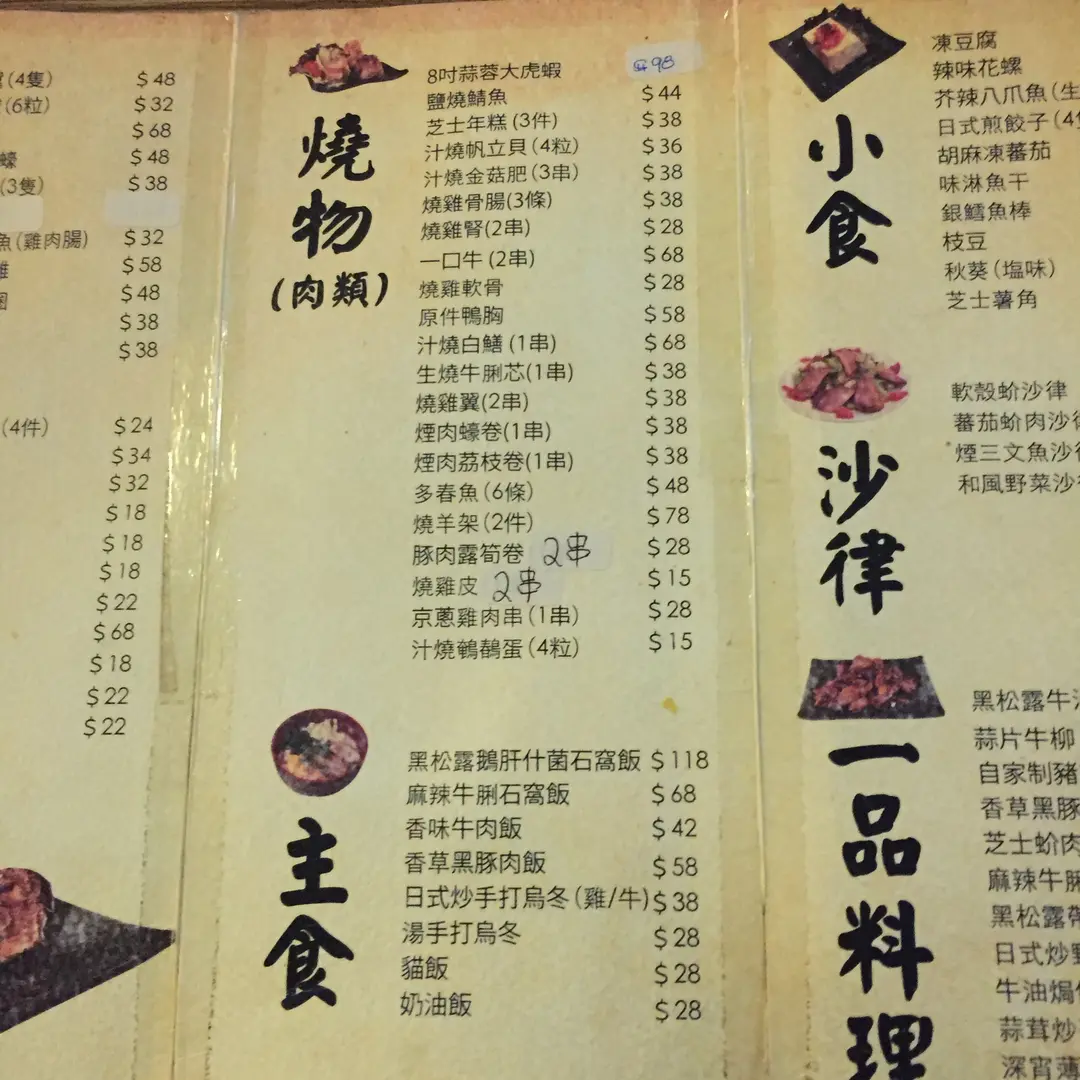 (4隻) $48
(6粒) $32
$68
蠔 $48
(3隻) $38
魚(雞肉腸) $32
雞 $58
$48
$38
$38
(4件) $24
$34
$32
$18
$18
$18
$22
$68
$18
$22
$22
燒物
(肉類)
8吋蒜蓉大虎蝦 $98
鹽燒鯖魚 $44
芝士年糕(3件) $38
汁燒帆立貝(4粒) $36
汁燒金菇肥(3串) $38
燒雞骨腸(3條) $38
燒雞腎(2串) $28
一口牛(2串) $68
燒雞軟骨 $28
原件鴨胸 $58
汁燒白鱔(1串) $68
生燒牛脷芯(1串) $38
燒雞翼(2串) $38
煙肉蠔卷(1串) $38
煙肉荔枝卷(1串) $38
多春魚(6條) $48
燒羊架(2件) $78
豚肉露筍卷 2串 $28
燒雞皮 2串 $15
京蔥雞肉串(1串) $28
汁燒鵪鶉蛋(4粒) $15
主食
黑松露鵝肝什菌石窩飯 $118
麻辣牛脷石窩飯 $68
香味牛肉飯 $42
香草黑豚肉飯 $58
日式炒手打烏冬(雞/牛) $38
湯手打烏冬 $28
貓飯 $28
奶油飯 $28
小食
凍豆腐
辣味花螺
芥辣八爪魚(生
日式煎餃子(4
胡麻凍蕃茄
味淋魚干
銀鱈魚棒
枝豆
秋葵(塩味)
芝士薯角
沙律
軟殼蚧沙律
蕃茄蚧肉沙律
煙三文魚沙律
和風野菜沙
一品料理
黑松露牛
蒜片牛柳
自家制豬
香草黑豚
芝士蚧肉
麻辣牛脷
黑松露帶
日式炒野
牛油焗
蒜茸炒
深宵薄